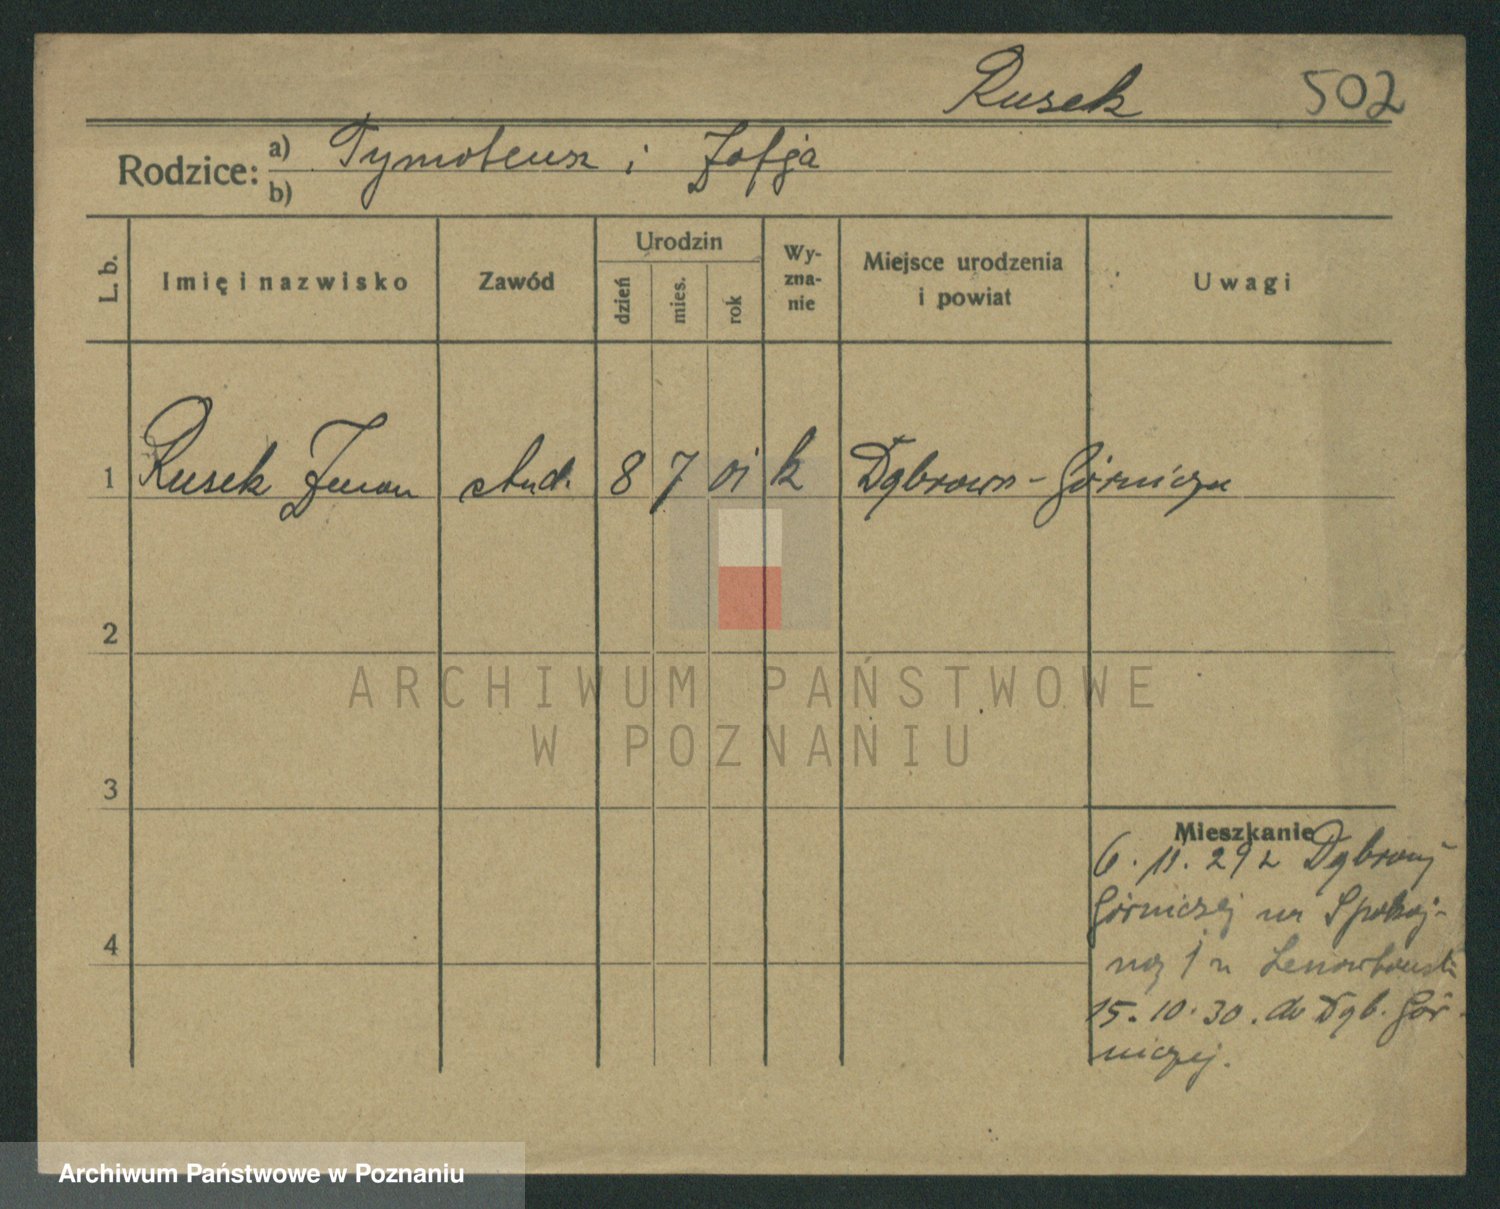 Rusek 502
Rodzice: a) Tymoteusz i Zofja
b)
L. b. Imię i nazwisko Zawód Urodzin dzień mies. rok Wy-zna-nie Miejsce urodzenia i powiat Uwagi
1 Rusek Zenon stud. 8 7 01 k Dąbrowa-Górnicza
2
ARCHIWUM PAŃSTWOWE
W POZNANIU
3
Mieszkanie
6. 11. 29 z Dąbrowy
Górniczej na Spokoj-
4
ną 1 u
15. 10. 30. do Dąb. Gór-
niczej.
Archiwum Państwowe w Poznaniu